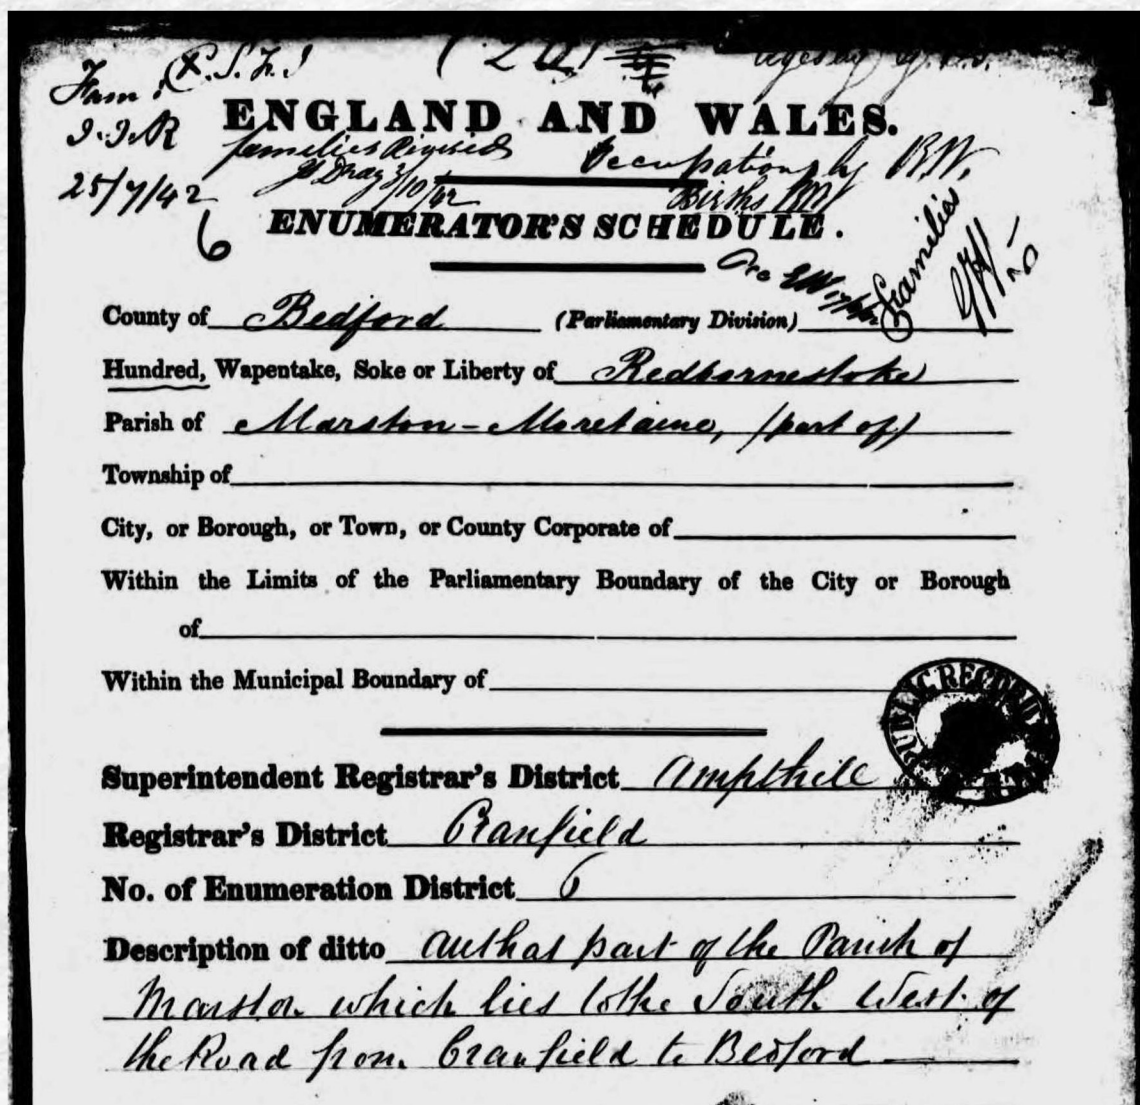 Fam:
J.J.R
25/7/42
6
ENGLAND AND WALES.
families Revised
3/10/42
Occupations by R.W.
Births RW
ENUMERATOR'S SCHEDULE.
Families
County of Bedford (Parliamentary Division)
Hundred, Wapentake, Soke or Liberty of Redbornestoke
Parish of Marston-Moretaine, (part of)
Township of
City, or Borough, or Town, or County Corporate of
Within the Limits of the Parliamentary Boundary of the City or Borough
of
Within the Municipal Boundary of
PUBLIC RECORD
Superintendent Registrar's District Ampthill
Registrar's District Cranfield
No. of Enumeration District 6
Description of ditto all that part of the Parish of
Marston which lies to the South West of
the Road from Cranfield to Bedford